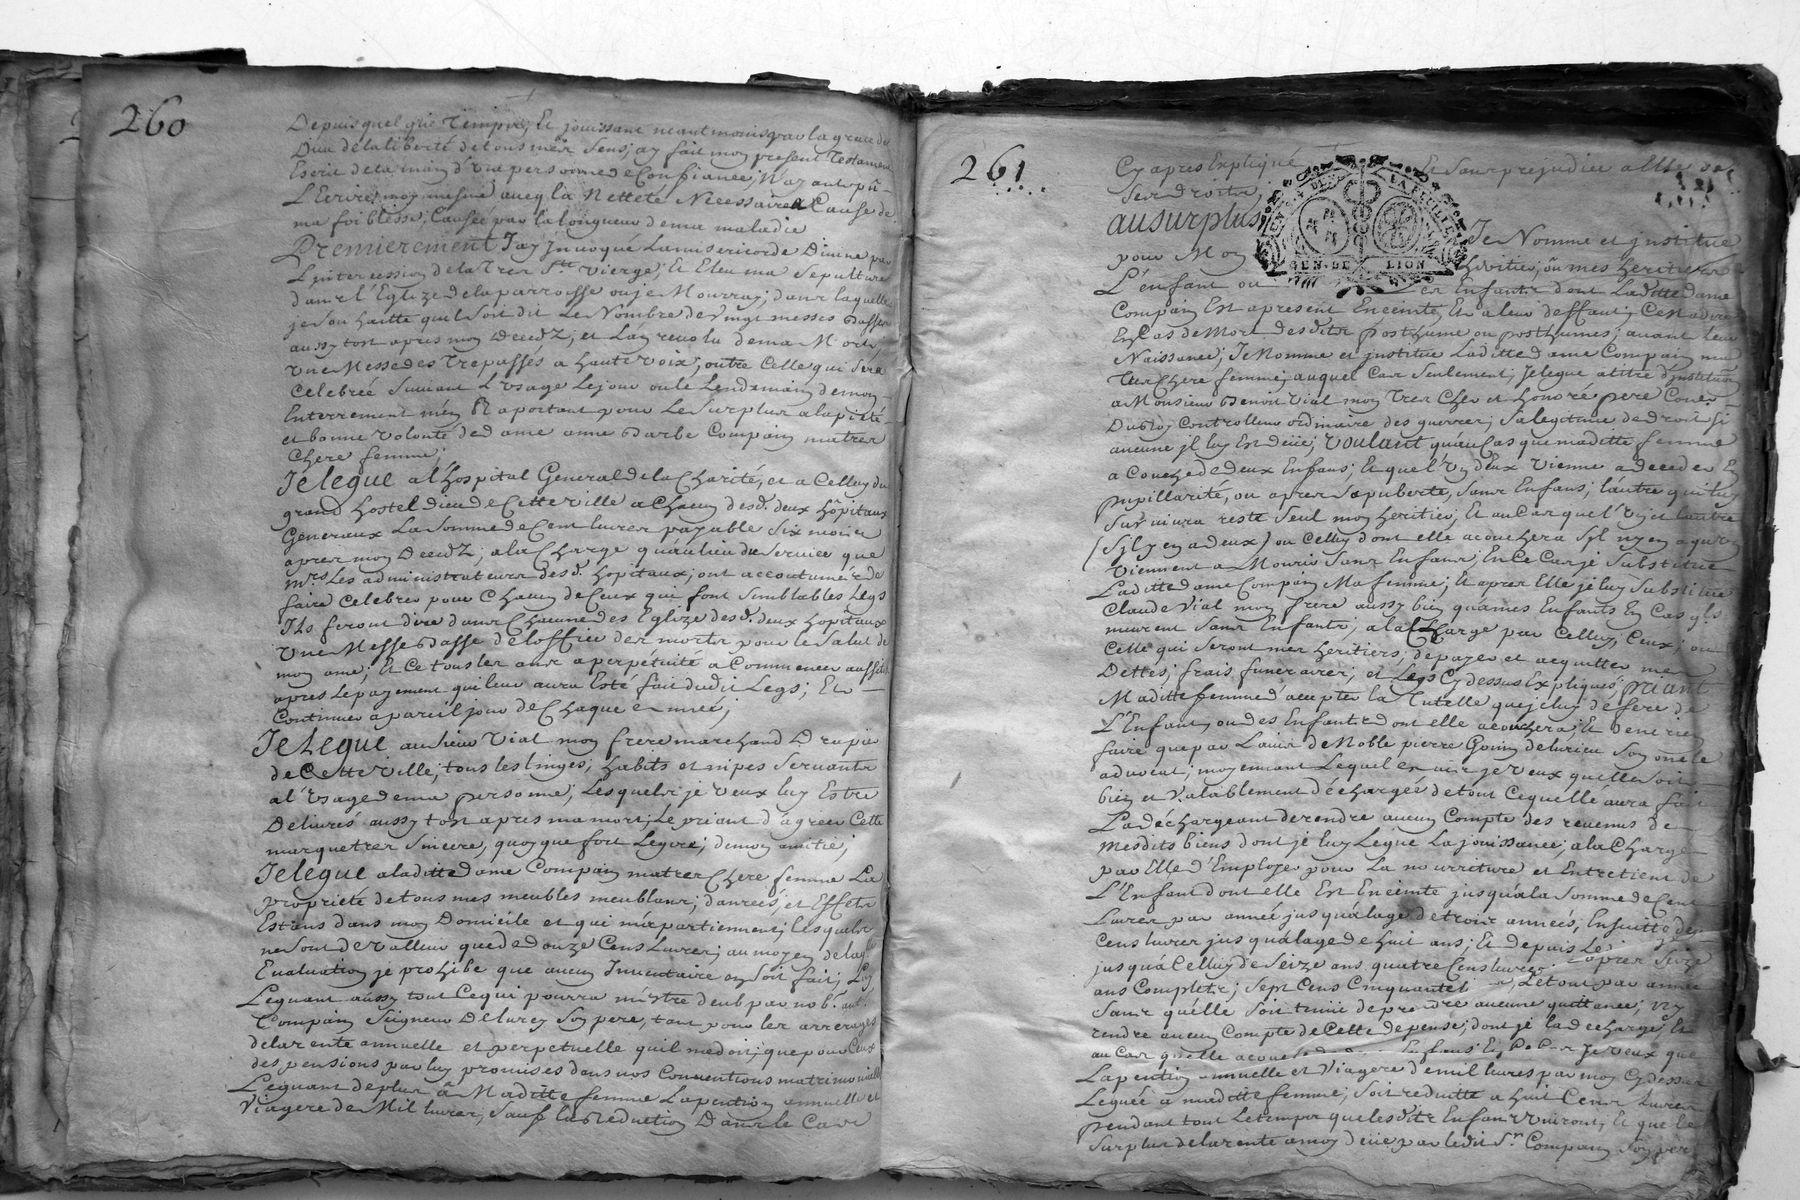 260
Depuis quelque Temps, Et jouissant neantmoins par la grace de
Dieu de la liberté de tous mes sens; ay fait mon present Testament
Escrit de la main d'une personne de Confiance, N'ay ant pû
L'Ecrire moy mesme aveq la Netteté Necessaire a Cause de
ma foiblesse, Causée par la longueur de ma maladie
Premierement J'ay jnvoqué La misericorde Divine par
L'intercession de la Tres Ste. Vierge; Et Eleu ma sepulture
dans l'Eglize de la parroisse ou je Mourray; dans laquelle
je souhaitte quil soit dit Le Nombre de vingt messes basses
aussy tost apres mon Decedz, et
Une Messe des Trepassés a haute voix, outre Celle qui sera
Celebrée suivant L'usage Le jour ou le Lendemain de mon
Enterrement m'en Raportant pour Le surplus a la pieté
et bonne volonté de dame anne Barbe Compain ma tres
Chere femme;
Je legue a l'hospital General de la Charité, et a Celluy du
grand hostel dieu de Cette ville a Chacun desd. deux hôpitaux
Generaux La somme de Cent livres payable six mois
apres mon Decedz; a la Charge qu'au lieu du service que
mrs Les administrateurs desd. hopitaux; ont accoutumés de
faire Celebrer pour Chacun de Ceux que font semblables Legs
Ils feront dire dans Chacune des Eglize desd. deux hôpitaux
Une Messe Basse de L'office des morts pour le salut de
mon ame; Et Ce tous les ans a perpétuité a Commencer aussitôt
apres Le payement qui leur aura Esté fait dudit Legs; Et
Continuer a pareil jour de Chaque année;
Je Legue au sieur Vial mon frere marchand Drapier
de Cette ville; tous les linges, habits et nipes servants
a l'usage de ma personne, Lesquels je veux luy Estre
Delivrés aussy tost apres ma mort; Le priant d'agreer Cette
marque tres sincere, quoy que fort Legere; de mon amitié;
Je legue a laditte dame Compain ma tres Chere femme La
propriété de tous mes meubles meublans; danrées, et Effets
Estans dans mon Domicile et qui m'apartiennent; Lesquels
ne sont de valleur que de douze Cens Livres; au moyen de laqlle
Evaluation je prohibe que aucun Inventaire en soit fait; Luy
Leguant aussy tout Ce qui pourra m'estre deub par
Compain seigneur Delurcy son pere, tant pour les arrerages
de la rente annuelle et perpetuelle quil me doit; que pour Ceux
des pensions par luy promises dans nos Conventions matrimonialles
Leguant de plus à Maditte femme La pention annuelle et
Viagere de Mil livres, sauf la Reduction Dans le Cas
261
Cy apres Expliqué Et sans prejudice a Elle de
ses droits
au surplus Je Nomme et jnstitue
pour Mon heritier, ou mes heritiers
L'enfant ou les Enfants dont Laditte dame
Compain Est apresent Enceinte, Et a leur deffaut, C'est a dire
En Cas de Mort desdits posthume ou posthumes; avant leur
Naissance; Je Nomme et jnstitue Laditte dame Compain ma
Tres Chere femme; auquel Cas seulement, je legue a titre d'jnstitution
a Monsieur Benoit Vial mon Tres Cher et honoré pere
Controlleur ordinaire des guerres; sa legitime de droit si
aucune jl luy Est deüe; voulant qu'au Cas que maditte femme
accouche de deux Enfans; Et que l'un d'Eux vienne a deceder En
pupillarité, ou apres sa puberté, sans Enfans; l'autre qui luy
survivra reste seul mon heritier, Et au Cas que l'un et l'autre
(s'jl y en a deux) ou Celluy dont elle acouchera s'jl n'y en a qu'un
viennent a Mourir sans Enfans; En Ce Cas je substitue
Laditte dame Compain Ma femme; Et apres Elle je luy substitue
Claude Vial mon frere aussy bien qu'a mes Enfants En Cas qls
meurent sans Enfants; a la Charge par Celluy, Ceux; ou
Celle qui seront mes heritiers; de payer et acquitter mes
Dettes; frais funeraires; et Legs Cy dessus Expliqués; priant
Maditte femme d'accepter la Tutelle que je luy defere de
L'Enfant, ou des Enfants dont elle acouchera; Et de ne rien
faire que par L'avis de Noble pierre Gonin delurieu son oncle
advocat; moyennant Lequel avis je veux quelle soit
bien et valablement déchargée de tout Ce quelle aura fait
La déchargeant de rendre aucun Compte des revenus de
Mesdits biens dont je luy Légue La jouissance; a la Charge
par Elle d'Employer pour La nourriture et Entretient de
L'Enfant dont elle Est Enceinte jusqu'a la somme de Cent
Livres par année jusqu'a l'age de trois années, Ensuitte de
Cens livres jusqu'a l'age de huit ans; Et depuis Led.
jusqu'a Celluy de seize ans quatre Cens livres apres seize
ans Complets; sept Cens Cinquante Le tout par année
sans qu'elle soit tenüe de prendre aucune quittance; ny
rendre aucun Compte de Cette depense; dont je la decharge; Et
au Cas qu'elle acouche de Enfans En Ce Cas Je veux que
La pention annuelle et Viagere de mil livres par moy Cy dessus
Leguée a maditte femme, soit reduitte a huit Cens Livres
pendant tout Le temps que lesdits Enfans vivront, Et que le
surplus de la rente a moy deüe par ledit sr. Compain son pere
GEN. DE LION